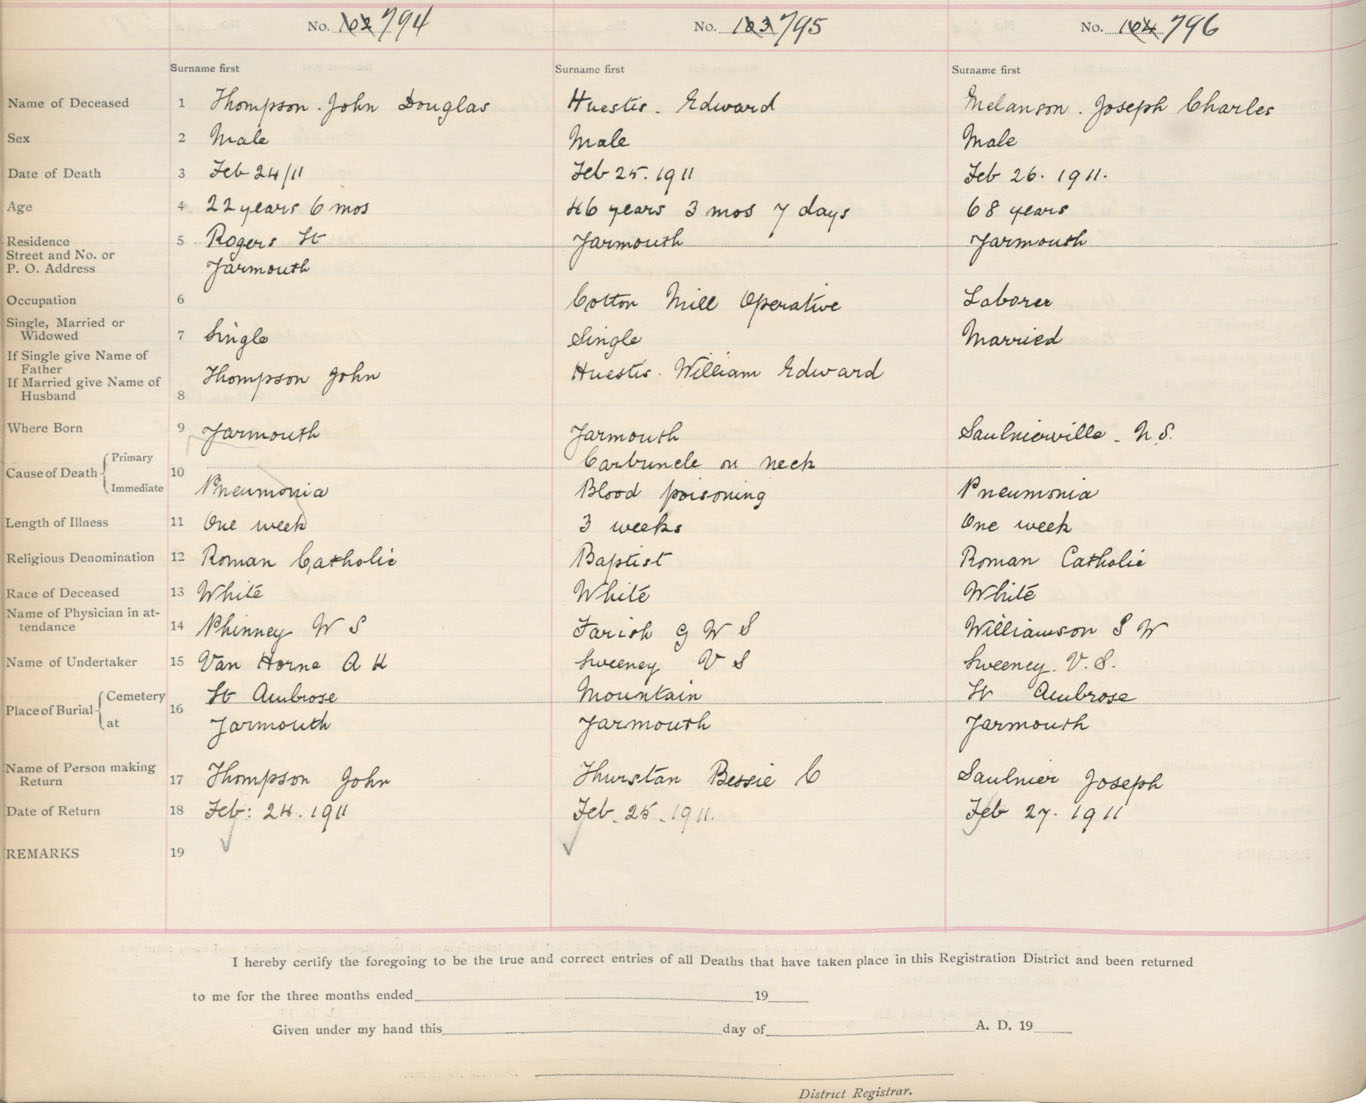 No. 102 794 No. 103 795 No. 104 796
Surname first Surname first Surname first
Name of Deceased 1 Thompson. John Douglas Huestis. Edward Melanson. Joseph Charles
Sex 2 Male Male Male
Date of Death 3 Feb 24/11 Feb 25. 1911 Feb 26. 1911.
Age 4 22 years 6 mos 46 years 3 mos 7 days 68 years
Residence 5 Rogers St Yarmouth Yarmouth
Street and No. or
P. O. Address Yarmouth
Occupation 6 Cotton Mill Operative Laborer
Single, Married or
Widowed 7 Single Single Married
If Single give Name of
Father
Thompson John Huestis. William Edward
If Married give Name of
Husband 8
Where Born 9 Yarmouth Yarmouth Saulnierville. N.S.
Cause of Death Primary 10 Carbuncle on neck
Immediate Pneumonia Blood poisoning Pneumonia
Length of Illness 11 One week 3 weeks One week
Religious Denomination 12 Roman Catholic Baptist Roman Catholic
Race of Deceased 13 White White White
Name of Physician in at-
tendance 14 Phinney W S Farish G W S Williamson S W
Name of Undertaker 15 Van Horne A K Sweeney V S Sweeney. V. S.
Place of Burial Cemetery 16 St Ambrose Mountain St Ambrose
at Yarmouth Yarmouth Yarmouth
Name of Person making
Return 17 Thompson John Thurstan Bessie C Saulnier Joseph
Date of Return 18 Feb: 24. 1911 Feb. 25. 1911. Feb 27. 1911
REMARKS 19
I hereby certify the foregoing to be the true and correct entries of all Deaths that have taken place in this Registration District and been returned
to me for the three months ended 19
Given under my hand this day of A. D. 19
District Registrar.